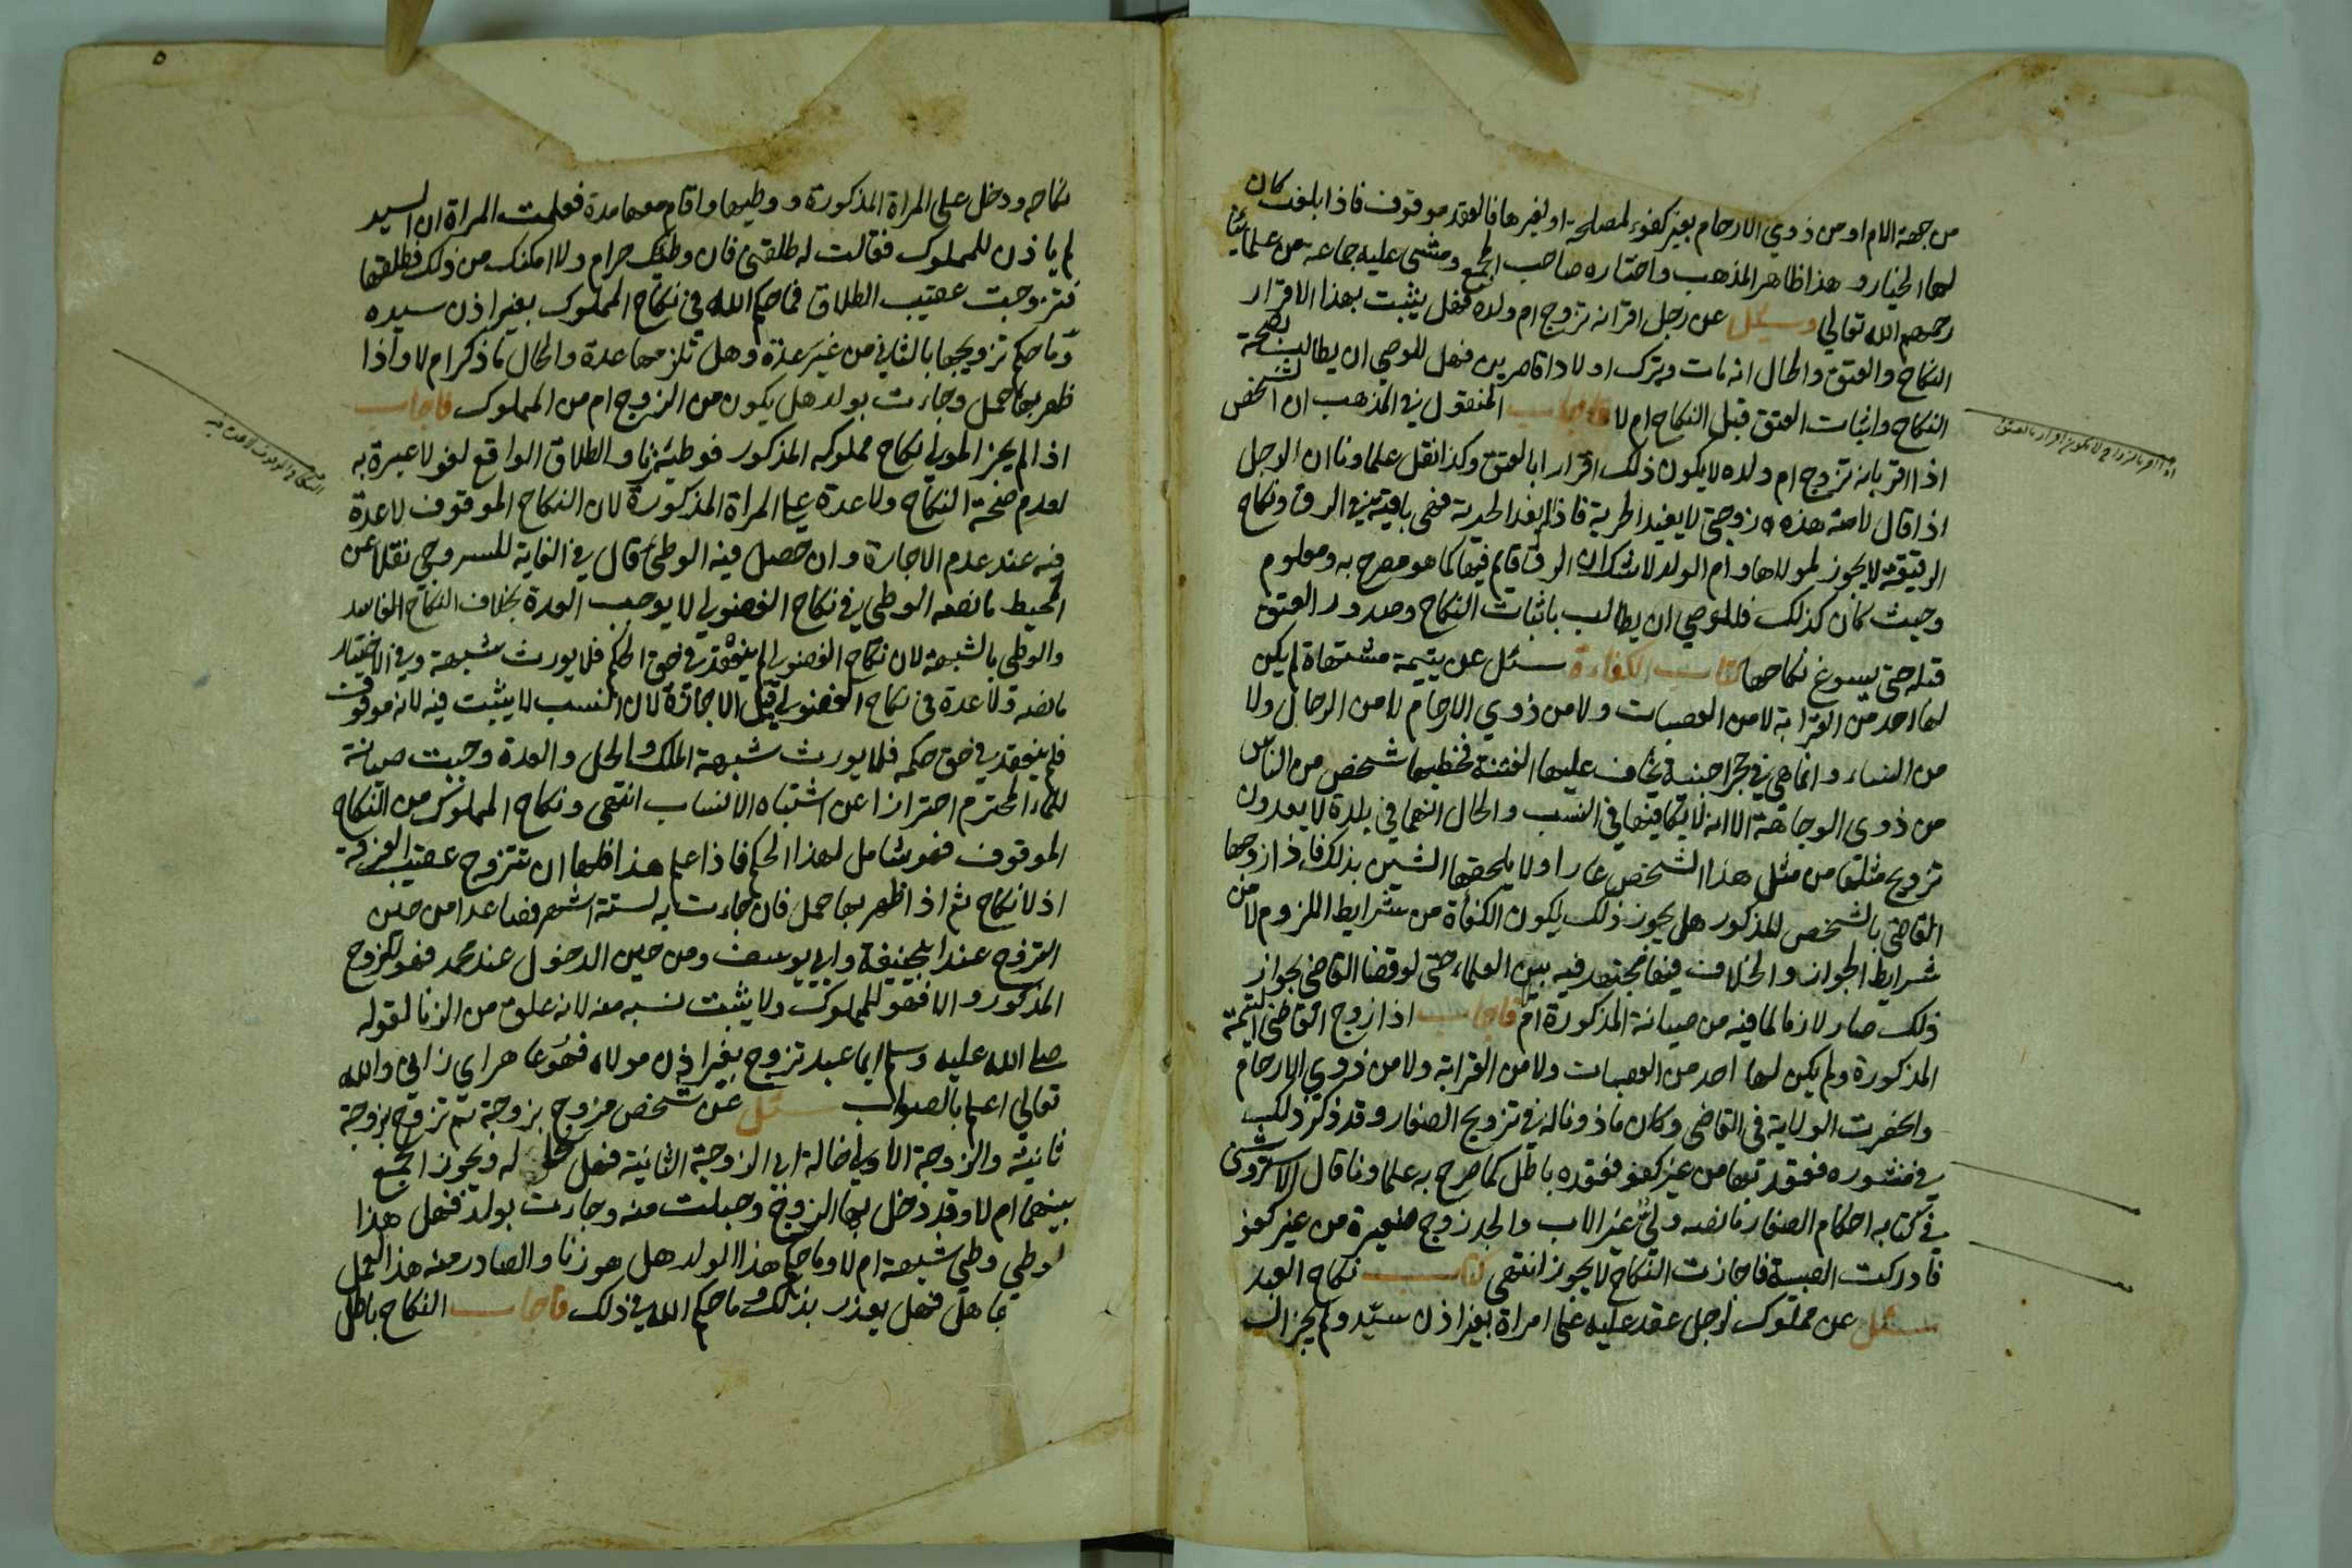 من جهة الام او من ذوي الارحام بغير كفوء لمصلحة او لغيرها فالعقد موقوف فاذا بلغت كان
لها الخيار وهذا ظاهر المذهب واختاره صاحب المجمع ومشى عليه جماعة من علمائنا
رحمهم الله تعالي وسئل عن رجل اقر انه تزوج ام ولده فهل يثبت بهذا الاقرار
النكاح والعتق والحال انه مات وترك اولادا قاصرين فهل للوصي ان يطالب بصحة
النكاح واثبات العتق قبل النكاح ام لا فاجاب المنقول في المذهب ان الشخص
اذا اقر بانه تزوج ام ولده لا يكون ذلك اقرارا بالعتق وكذا نقل علماونا ان الرجل
اذا قال لامته هذه زوجتي لا يفيد الحرية فاذا لم يفد الحرية فهي باقية في الرق ونكاح
الرقيقة لا يجوز لمولاها وام الولد لا شك ان الرق قايم فيها كما هو مصرح به ومعلوم
وحيث كان كذلك فللوصي ان يطالب باثبات النكاح وصدور العتق
قبله حتى يسوغ نكاحها كتاب الكفاءة سئل عن يتيمة مشتهاة لم يكن
لها احد من القرابة لا من العصبات ولا من ذوي الارحام لا من الرجال ولا
من النساء وانما هي في حجر اجنبية يخاف عليها الفتنة فخطبها شخص من الناس
من ذوي الوجاهة الا انه لا يكافيها في النسب والحال انهما في بلدة لا يعدون
تزويج مثلها من مثل هذا الشخص عارا ولا يلحقها الشين بذلك فاذا زوجها
القاضي بالشخص المذكور هل يجوز ذلك لكون الكفأة من شرايط اللزوم لا من
شرايط الجواز والخلاف فيها مجتهد فيه بين العلماء حتى لو قضا القاضي بجواز
ذلك صار لازما لما فيه من صيانة المذكورة ام لا فاجاب اذا زوج القاضي اليتيمة
المذكورة ولم يكن لها احد من العصبات ولا من القرابة ولا من ذوي الارحام
وانحصرت الولاية في القاضي وكان ماذونا له في تزويج الصغار وقد ذكر ذلك
في منشوره فعقد تها من غير كفو فعقده باطل كما صرح به علماونا قال الاستروشني
في كتابه احكام الصغار ما نصه ولي غير الاب والجد زوج صغيرة من غير كفو
فادركت الصبية فاجازت النكاح لا يجوز انتهى كتاب نكاح العبد
سئل عن مملوك لرجل عقد عليه على امراة بغير اذن سيده ولم يجز السيد
اذا اقر بالزواج لا يكون اقرارا بالعتق
٥
نكاحه ودخل على المراة المذكورة ووطيها واقام معها مدة فعلمت المراة ان السيد
لم ياذن للمملوك فقالت له طلقني فان وطئك حرام ولا امكنك من ذلك فطلقها
فتزوجت عقيب الطلاق فما حكم الله في نكاح المملوك بغير اذن سيده
وما حكم تزويجها بالثاني من غير عدة وهل تلزمها عدة والحال ما ذكر ام لا واذا
ظهر بها حمل وجاءت بولد هل يكون من الزوج ام من المملوك فاجاب
اذا لم يجز المولي نكاح مملوكه المذكور فوطئه زنا والطلاق الواقع لغو لا عبرة به
لعدم صحة النكاح ولا عدة علي المراة المذكورة لان النكاح الموقوف لا عدة
فيه عند عدم الاجازة وان حصل فيه الوطئ قال في الغاية للسروجي نقلا عن
المحيط ما نصه الوطي في نكاح الفضولي لا يوجب العدة بخلاف النكاح الفاسد
والوطي بالشبهة لان نكاح الفضولي لم ينعقد في حق الحكم فلا يورث شبهة وفي الاختيار
ما نصه ولا عدة في نكاح الفضولي قبل الاجازة لان النسب لا يثبت فيه لانه موقوف
فلم ينعقد في حق حكمه فلا يورث شبهة الملك والحل والعدة وجبت صيانة
للماء المحترم احترازا عن اشتباه الانساب انتهى ونكاح المملوك من النكاح
الموقوف فهو شامل لهذا الحكم فاذا علم هذا فلها ان تتزوج عقيب الفرقة
اذ لا نكاح ثم اذا ظهر بها حمل فان جاءت به لستة اشهر فصاعدا من حين
التزوج عند ابي حنيفة وابي يوسف ومن حين الدخول عند محمد فهو للزوج
المذكور والا فهو للمملوك ولا يثبت نسبه منه لانه علوق من الزنا لقوله
صلى الله عليه وسلم ايما عبد تزوج بغير اذن مولاه فهو عاهر اي زاني والله
تعالي اعلم بالصواب سئل عن شخص مزوج بزوجة ثم تزوج بزوجة
ثانية والزوجة الاولي خالة ابي الزوجة الثانية فهل تحل له ويجوز الجمع
بينهما ام لا وقد دخل بها الزوج وحبلت منه وجاءت بولد فهل هذا
الوطي وطي شبهة ام لا وما حكم هذا الولد هل هو زنا والصادر منه هذا العمل
جاهل فهل يعذر بذلك وما حكم الله في ذلك فاجاب النكاح باطل
النكاح الموقوف لا عدة فيه